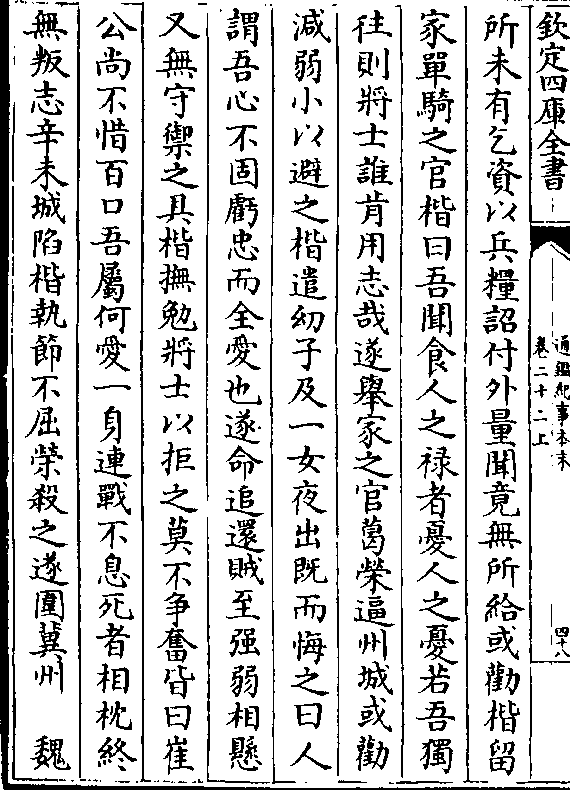 欽定四庫全書
通鑑紀事本末
卷二十二上
四十八
所未有乞資以兵糧詔付外量聞竟無所給或勸楷留
家單騎之官楷曰吾聞食人之祿者憂人之憂若吾獨
往則將士誰肯用志哉遂舉家之官葛榮逼州城或勸
減弱小以避之楷遣幼子及一女夜出既而悔之曰人
謂吾心不固虧忠而全愛也遂命追還賊至强弱相懸
又無守禦之具楷撫勉將士以拒之莫不争奮皆曰崔
公尚不惜百口吾屬何愛一身連戰不息死者相枕終
無叛志辛未城陷楷執節不屈榮殺之遂圍冀州　魏